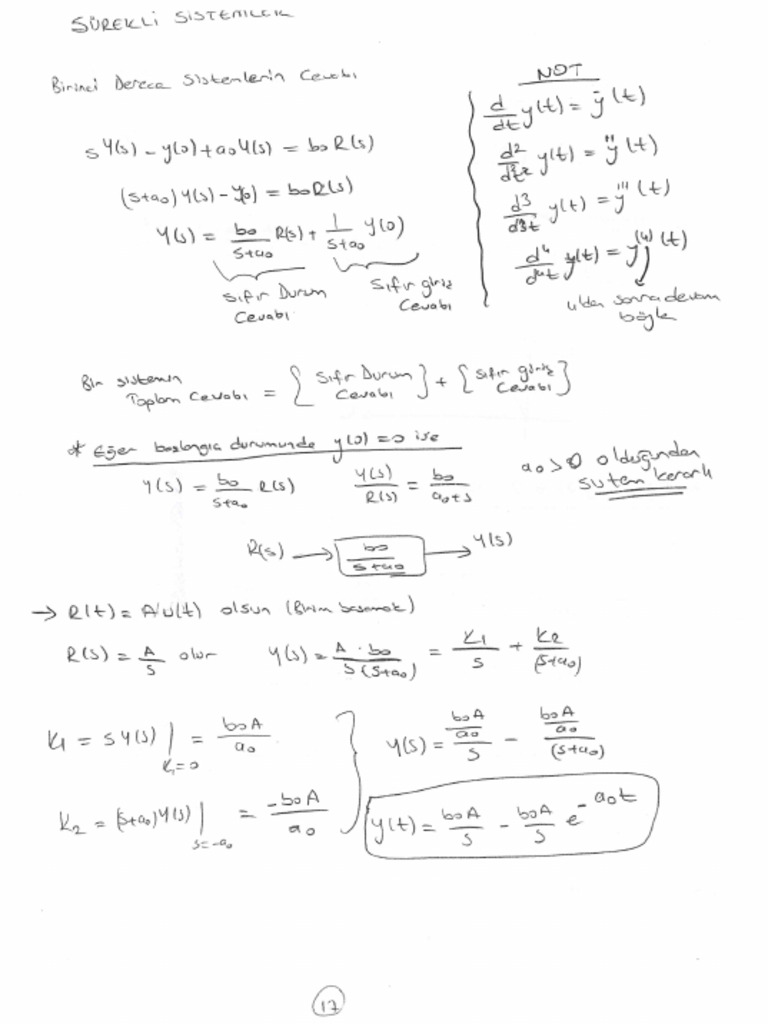 SÜREKLİ SİSTEMLER
Birinci Derece Sistemlerin Cevabı
sY(s) - y(0) + a₀Y(s) = b₀R(s)
(s+a₀)Y(s) - y(0) = b₀R(s)
Y(s) = b₀/(s+a₀) R(s) + 1/(s+a₀) y(0)
Sıfır Durum Cevabı
Sıfır giriş Cevabı
NOT
d/dt y(t) = ẏ(t)
d²/d²t y(t) = y''(t)
d³/d³t y(t) = y'''(t)
d⁴/d⁴t y(t) = y⁽⁴⁾(t)
4'den sonra devam
böyle
Bir sistemin
Toplam Cevabı = {Sıfır Durum Cevabı} + {Sıfır giriş Cevabı}
* Eğer başlangıç durumunda y(0)=0 ise
Y(s) = b₀/(s+a₀) R(s)  Y(s)/R(s) = b₀/(a₀+s)
a₀>0 olduğundan
sistem kararlı
R(s) → b₀/(s+a₀) → Y(s)
→ R(t) = A·u(t) olsun (Birim basamak)
R(s) = A/s olur  Y(s) = A·b₀/(s(s+a₀)) = K₁/s + K₂/(s+a₀)
K₁ = sY(s)|K₁=0 = b₀A/a₀
K₂ = (s+a₀)Y(s)|s=-a₀ = -b₀A/a₀
Y(s) = (b₀A/a₀)/s - (b₀A/a₀)/(s+a₀)
y(t) = b₀A/s - b₀A/s e^-a₀t
17